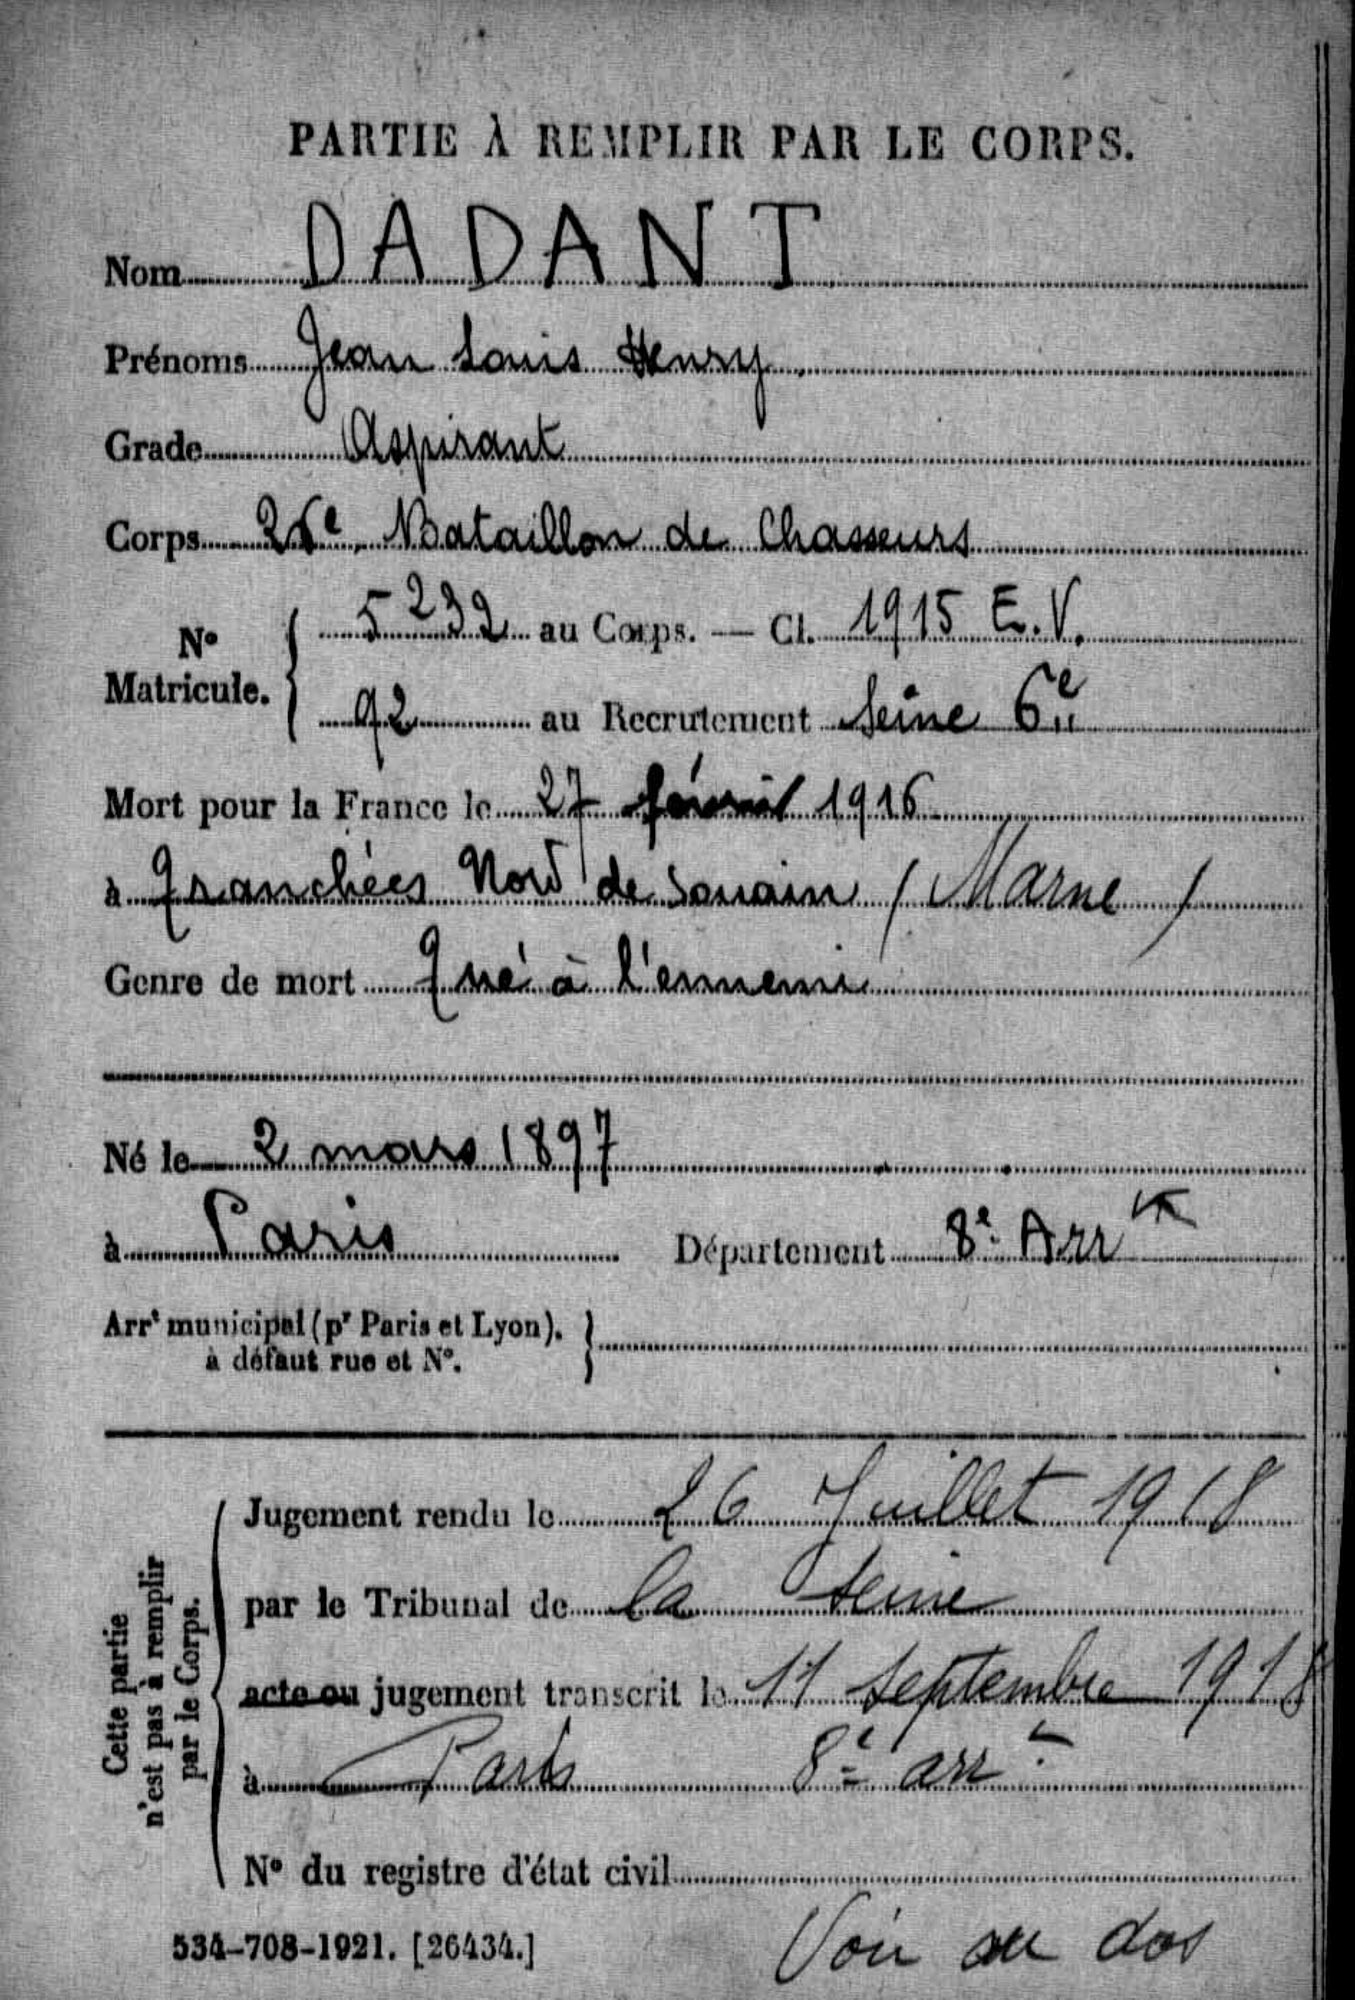 PARTIE À REMPLIR PAR LE CORPS.
Nom DADANT
Prénoms Jean Louis Henry
Grade Aspirant
Corps 26e Bataillon de Chasseurs
N° Matricule. 5232 au Corps. — Cl. 1915 E.V.
92 au Recrutement Seine 6e
Mort pour la France le 27 février 1916
à Tranchées Nord de Souain (Marne)
Genre de mort Tué à l'ennemi
Né le 2 mars 1897
à Paris Département 8e Arrt
Arrt municipal (pr Paris et Lyon).
à défaut rue et N°.
Cette partie
n'est pas à remplir
par le Corps.
Jugement rendu le 26 Juillet 1918
par le Tribunal de la Seine
acte ou jugement transcrit le 11 septembre 1918
à Paris 8e arrt
N° du registre d'état civil
534-708-1921. [26434.]
Voir au dos